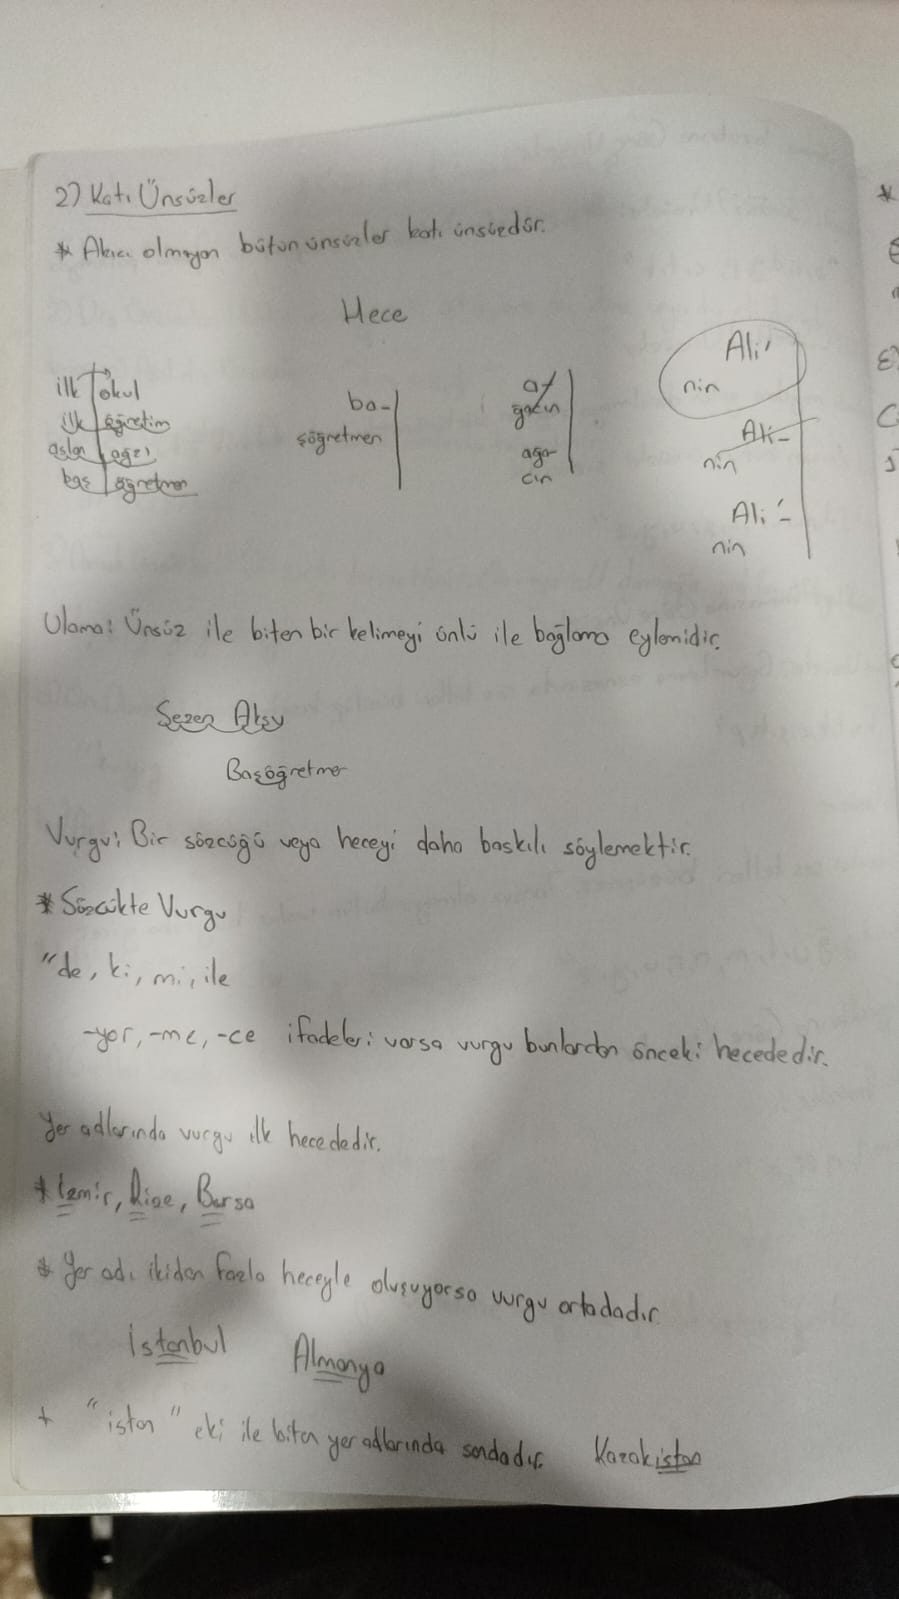 2) Katı Ünsüzler
* Akıcı olmayan bütün ünsüzler katı ünsüzdür.
Hece
ilk okul
ilk öğretim
aslan ağzı
baş öğretmen
ba-
şöğretmen
a/
ğacın
ağa-
cın
Ali'
nin
Ali-
nin
Ali'-
nin
Ulama: Ünsüz ile biten bir kelimeyi ünlü ile bağlama eylemidir.
Sezen Aksu
Başöğretmen
Vurgu: Bir sözcüğü veya heceyi daha baskılı söylemektir.
* Sözcükte Vurgu
"de, ki, mi, ile
-yor, -me, -ce ifadeleri varsa vurgu bunlardan önceki hecededir.
Yer adlarında vurgu ilk hecededir.
* İzmir, Rize, Bursa
* Yer adı ikiden fazla heceyle oluşuyorsa vurgu ortadadır.
İstanbul Almanya
* "istan" eki ile biten yer adlarında sondadır. Kazakistan